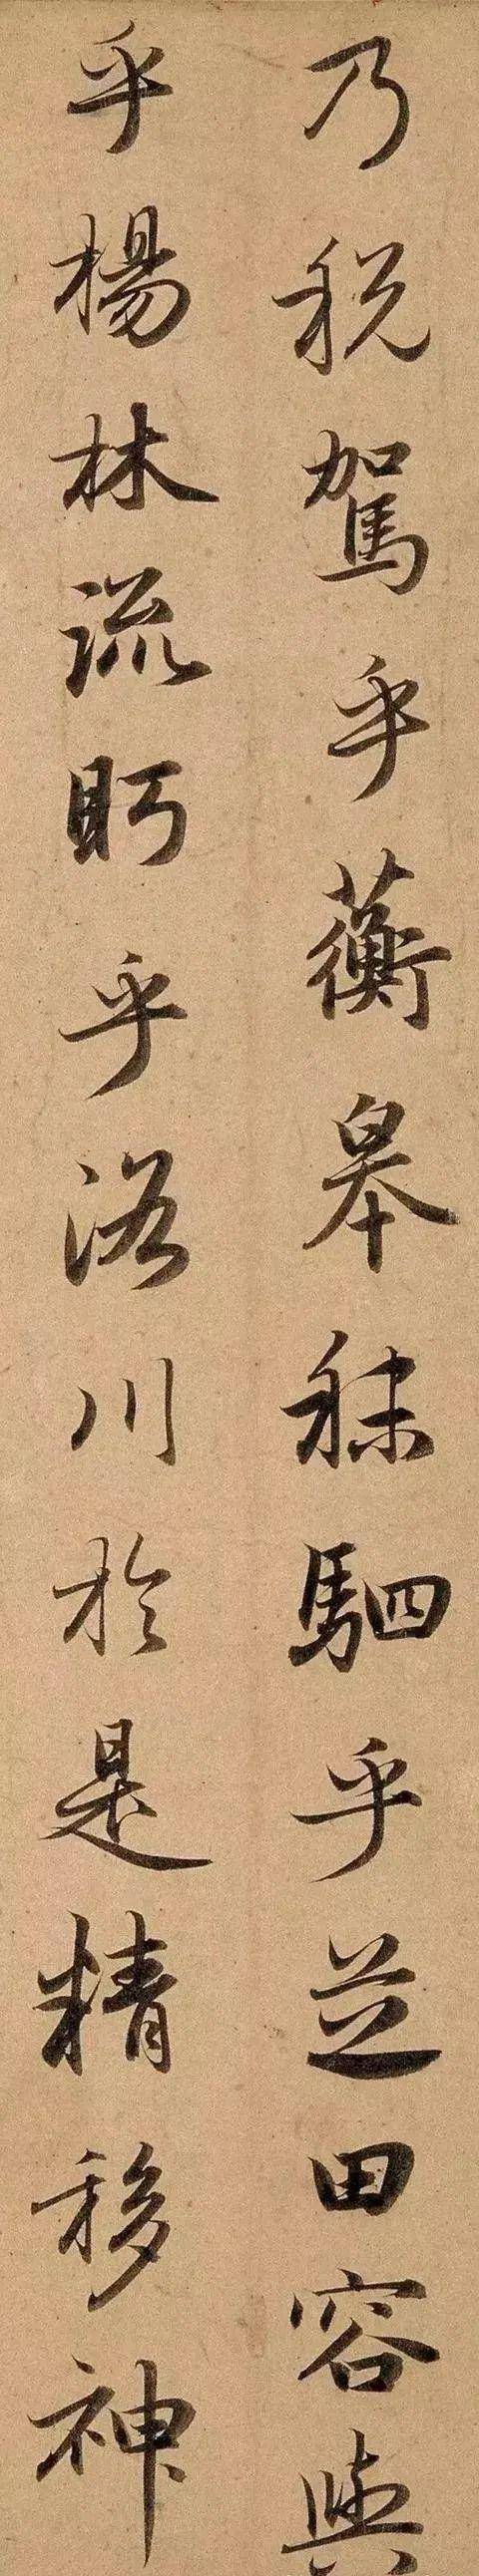 乃稅駕乎蘅皋秣駟乎芝田容與
乎楊林流眄乎洛川於是精移神